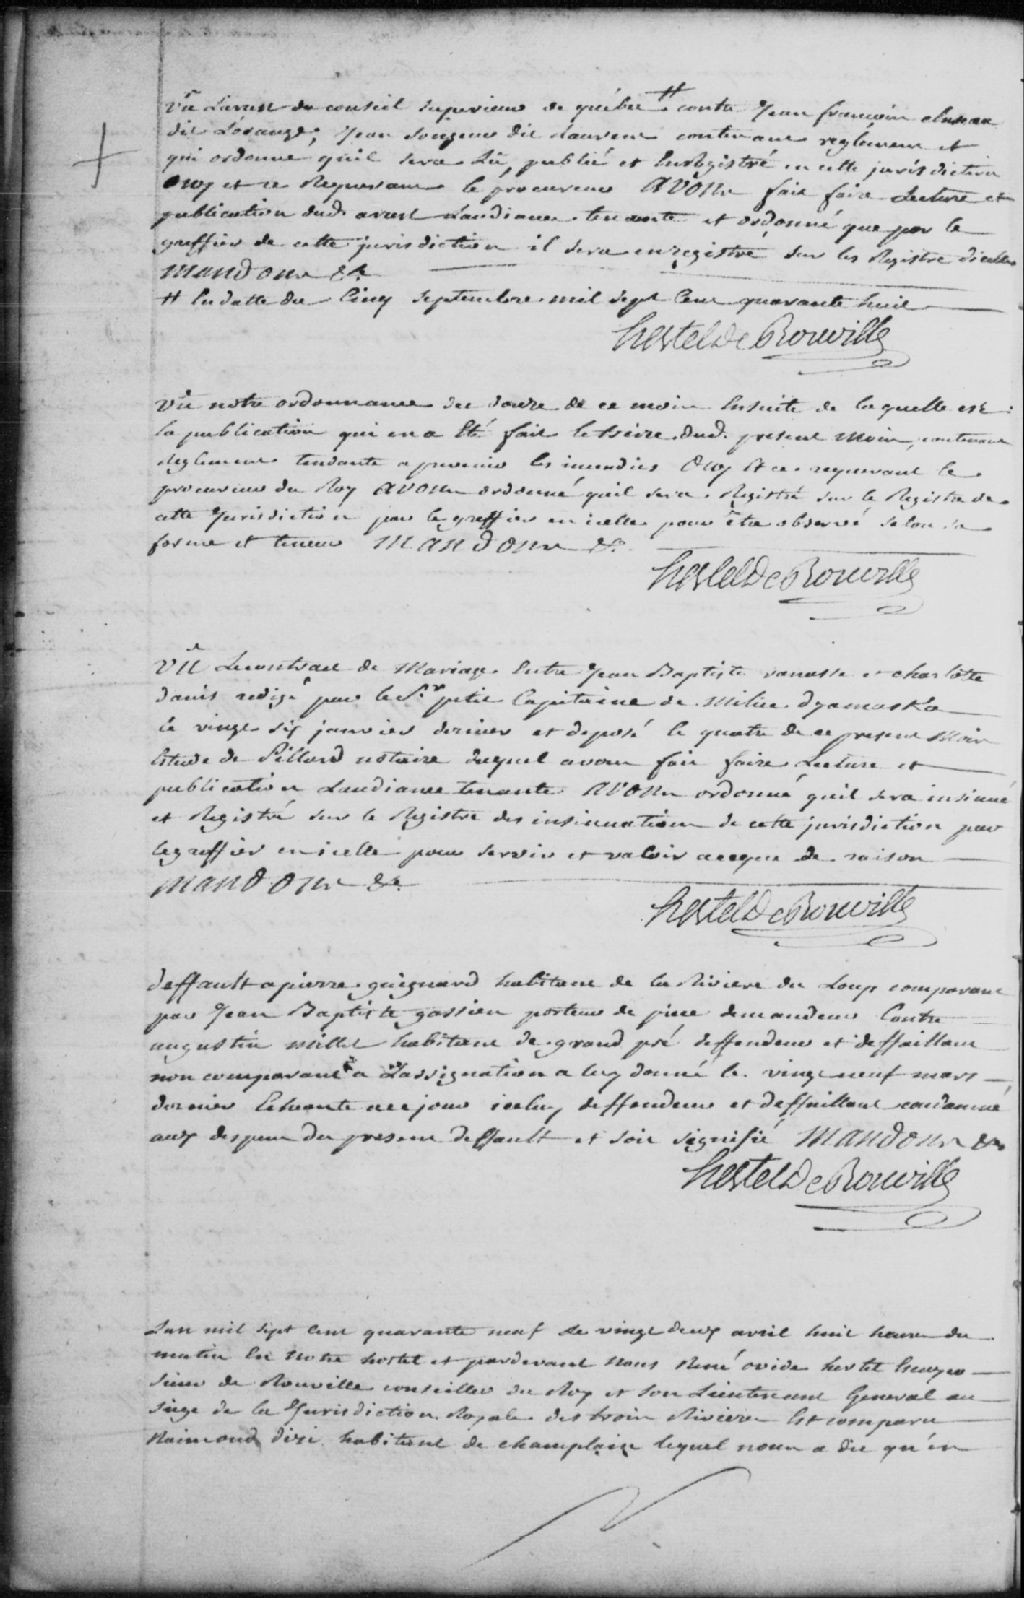 Vû Larrest du conseil superieur de quebec # contre Jean francois
dit Lorange, Jean dit Laurent contenant reglement et
qui ordonne quil sera Lû, publié et Enregistré en cette jurisdiction
Ouy et ce Requerant le procureur AVons fait faire Lecture et
publication dud. arrest Laudiance tenante et ordonné que par le
greffier de cette jurisdiction il sera enregistré sur les Registre dicelle
MANDONS &a
# En datte du Cinq Septembre mil Sept Cent quarante huit
hertel De Rouville
Vû notre ordonnance du douze de ce mois Ensuite de laquelle est
la publication qui en a Eté fait le treize dud. present Mois, contenant
Reglement tendante a prevenir les incendies Ouy Et ce requerant le
procureur du Roy AVONs ordonné quil sera Registré sur le Registre de
cette Jurisdiction par le greffier en icelle pour être observé selon sa
forme et teneur MANDONs &a
hertel De Rouville
VÛ Le contract de Mariage Entre Jean Baptiste vanasse et charlotte
danis redigé par le Sr. petit Capitaine de Milice dyamaska
le vingt six janvier dernier et deposé le quatre de ce present Mois
Etude de Pillard notaire duquel avons fait faire Lecture et
publication Laudiance tenante AVONs ordonné quil sera insinué
et Registré sur le Registre des insinuations de cette jurisdiction par
le greffier en icelle pour servir et valoir ce que de raison
MANDONs &a
hertel De Rouville
deffault a pierre guignard habitant de la Riviere du Loup comparant
par Jean Baptiste gossien porteur de piece demandeur Contre
augustin millet habitant de grand pré deffendeur et deffaillant
non comparant a Lassignation a luy donné le vingt neuf mars
dernier Echeante a ce jour iceluy deffendeur et deffaillant condamné
aux depens du present deffault et soit signifié MANDONs &a
hertel De Rouville
Lan mil sept cent quarante neuf le vingt deux avril huit heure du
matin En notre hostel et pardevant Nous René ovide hertel Ecuyer
sieur de Rouville conseiller du Roy et son Lieutenant General au
siege de la Jurisdiction Royale des trois Rivieres Est comparu
Raimond dizi habitant de champlain lequel nous a dit qu'en